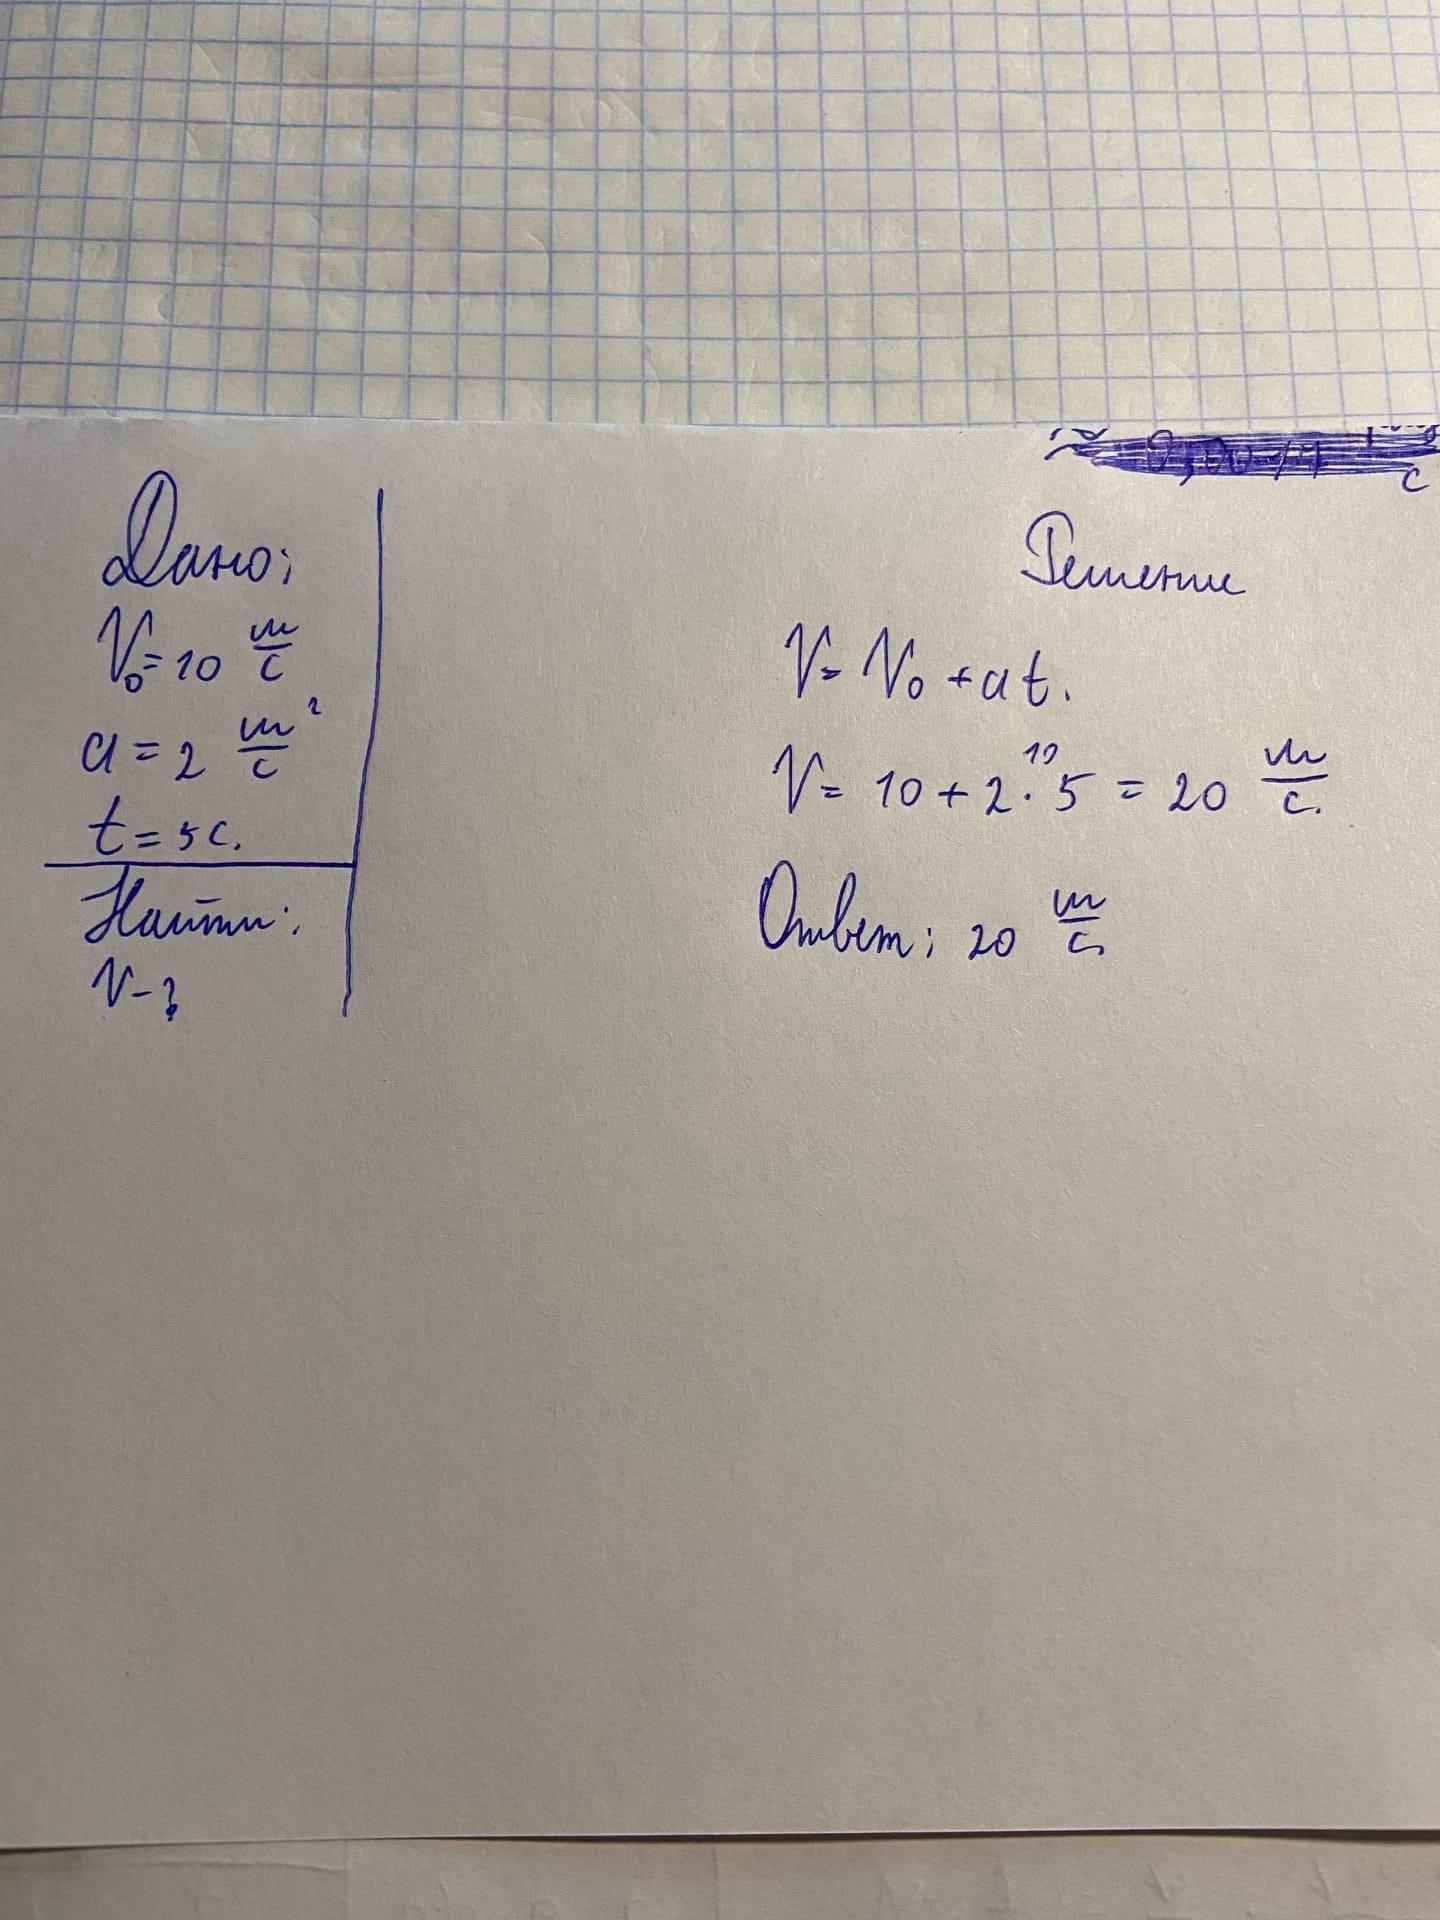 Дано:
V₀ = 10 м/с
a = 2 м²/с
t = 5 с.
Найти:
V - ?
с
Решение
V = V₀ + at.
10
V = 10 + 2 · 5 = 20 м/с.
Ответ: 20 м/с